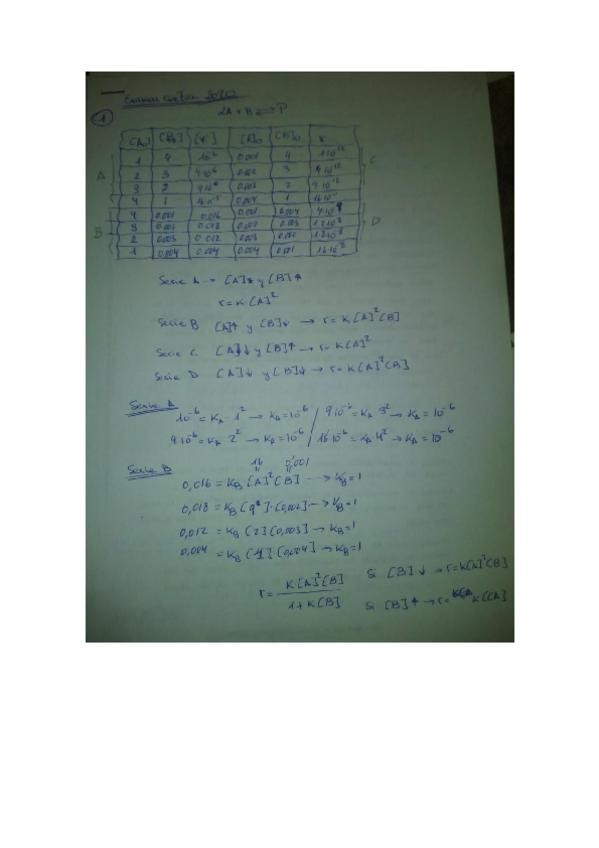 Examen 2020
1
2A + B ⇌ P
[A]₀ [B]₀ [r] [A]₀ [B]₀ r
1 4 10⁻⁶ 0.001 4 1·10⁻¹²
2 3 4·10⁻⁶ 0.002 3 4·10⁻¹²
3 2 9·10⁻⁶ 0.003 2 9·10⁻¹²
4 1 0.004 1
4 0.001 0.016 0.001 0.004
3 0.002 0.018 0.003
2 0.003 0.012 0.003
1 0.004 0.004 0.004 0.001
A
B
C
D
Serie A → [A] y [B]↑
r = K [A]²
Serie B [A]↑ y [B]↓ → r = K [A]² [B]
Serie C [A]↓ y [B]↑ → r = K [A]²
Serie D [A]↓ y [B]↓ → r = K [A]² [B]
Serie A
10⁻⁶ = K_A · 1² → K_A = 10⁻⁶ / 9·10⁻⁶ = K_A 3² → K_A = 10⁻⁶
4·10⁻⁶ = K_A 2² → K_A = 10⁻⁶ / 16·10⁻⁶ = K_A 4² → K_A = 10⁻⁶
Serie B
16 0,001
0,016 = K_B [A]² [B] → K_B = 1
0,018 = K_B [9]·[0,002] → K_B = 1
0,012 = K_B [2] [0,003] → K_B = 1
0,004 = K_B [1]·[0,004] → K_B = 1
r = K[A]²[B] / 1 + K[B]
Si [B]↓ → r = K[A]²[B]
Si [B]↑ → r =